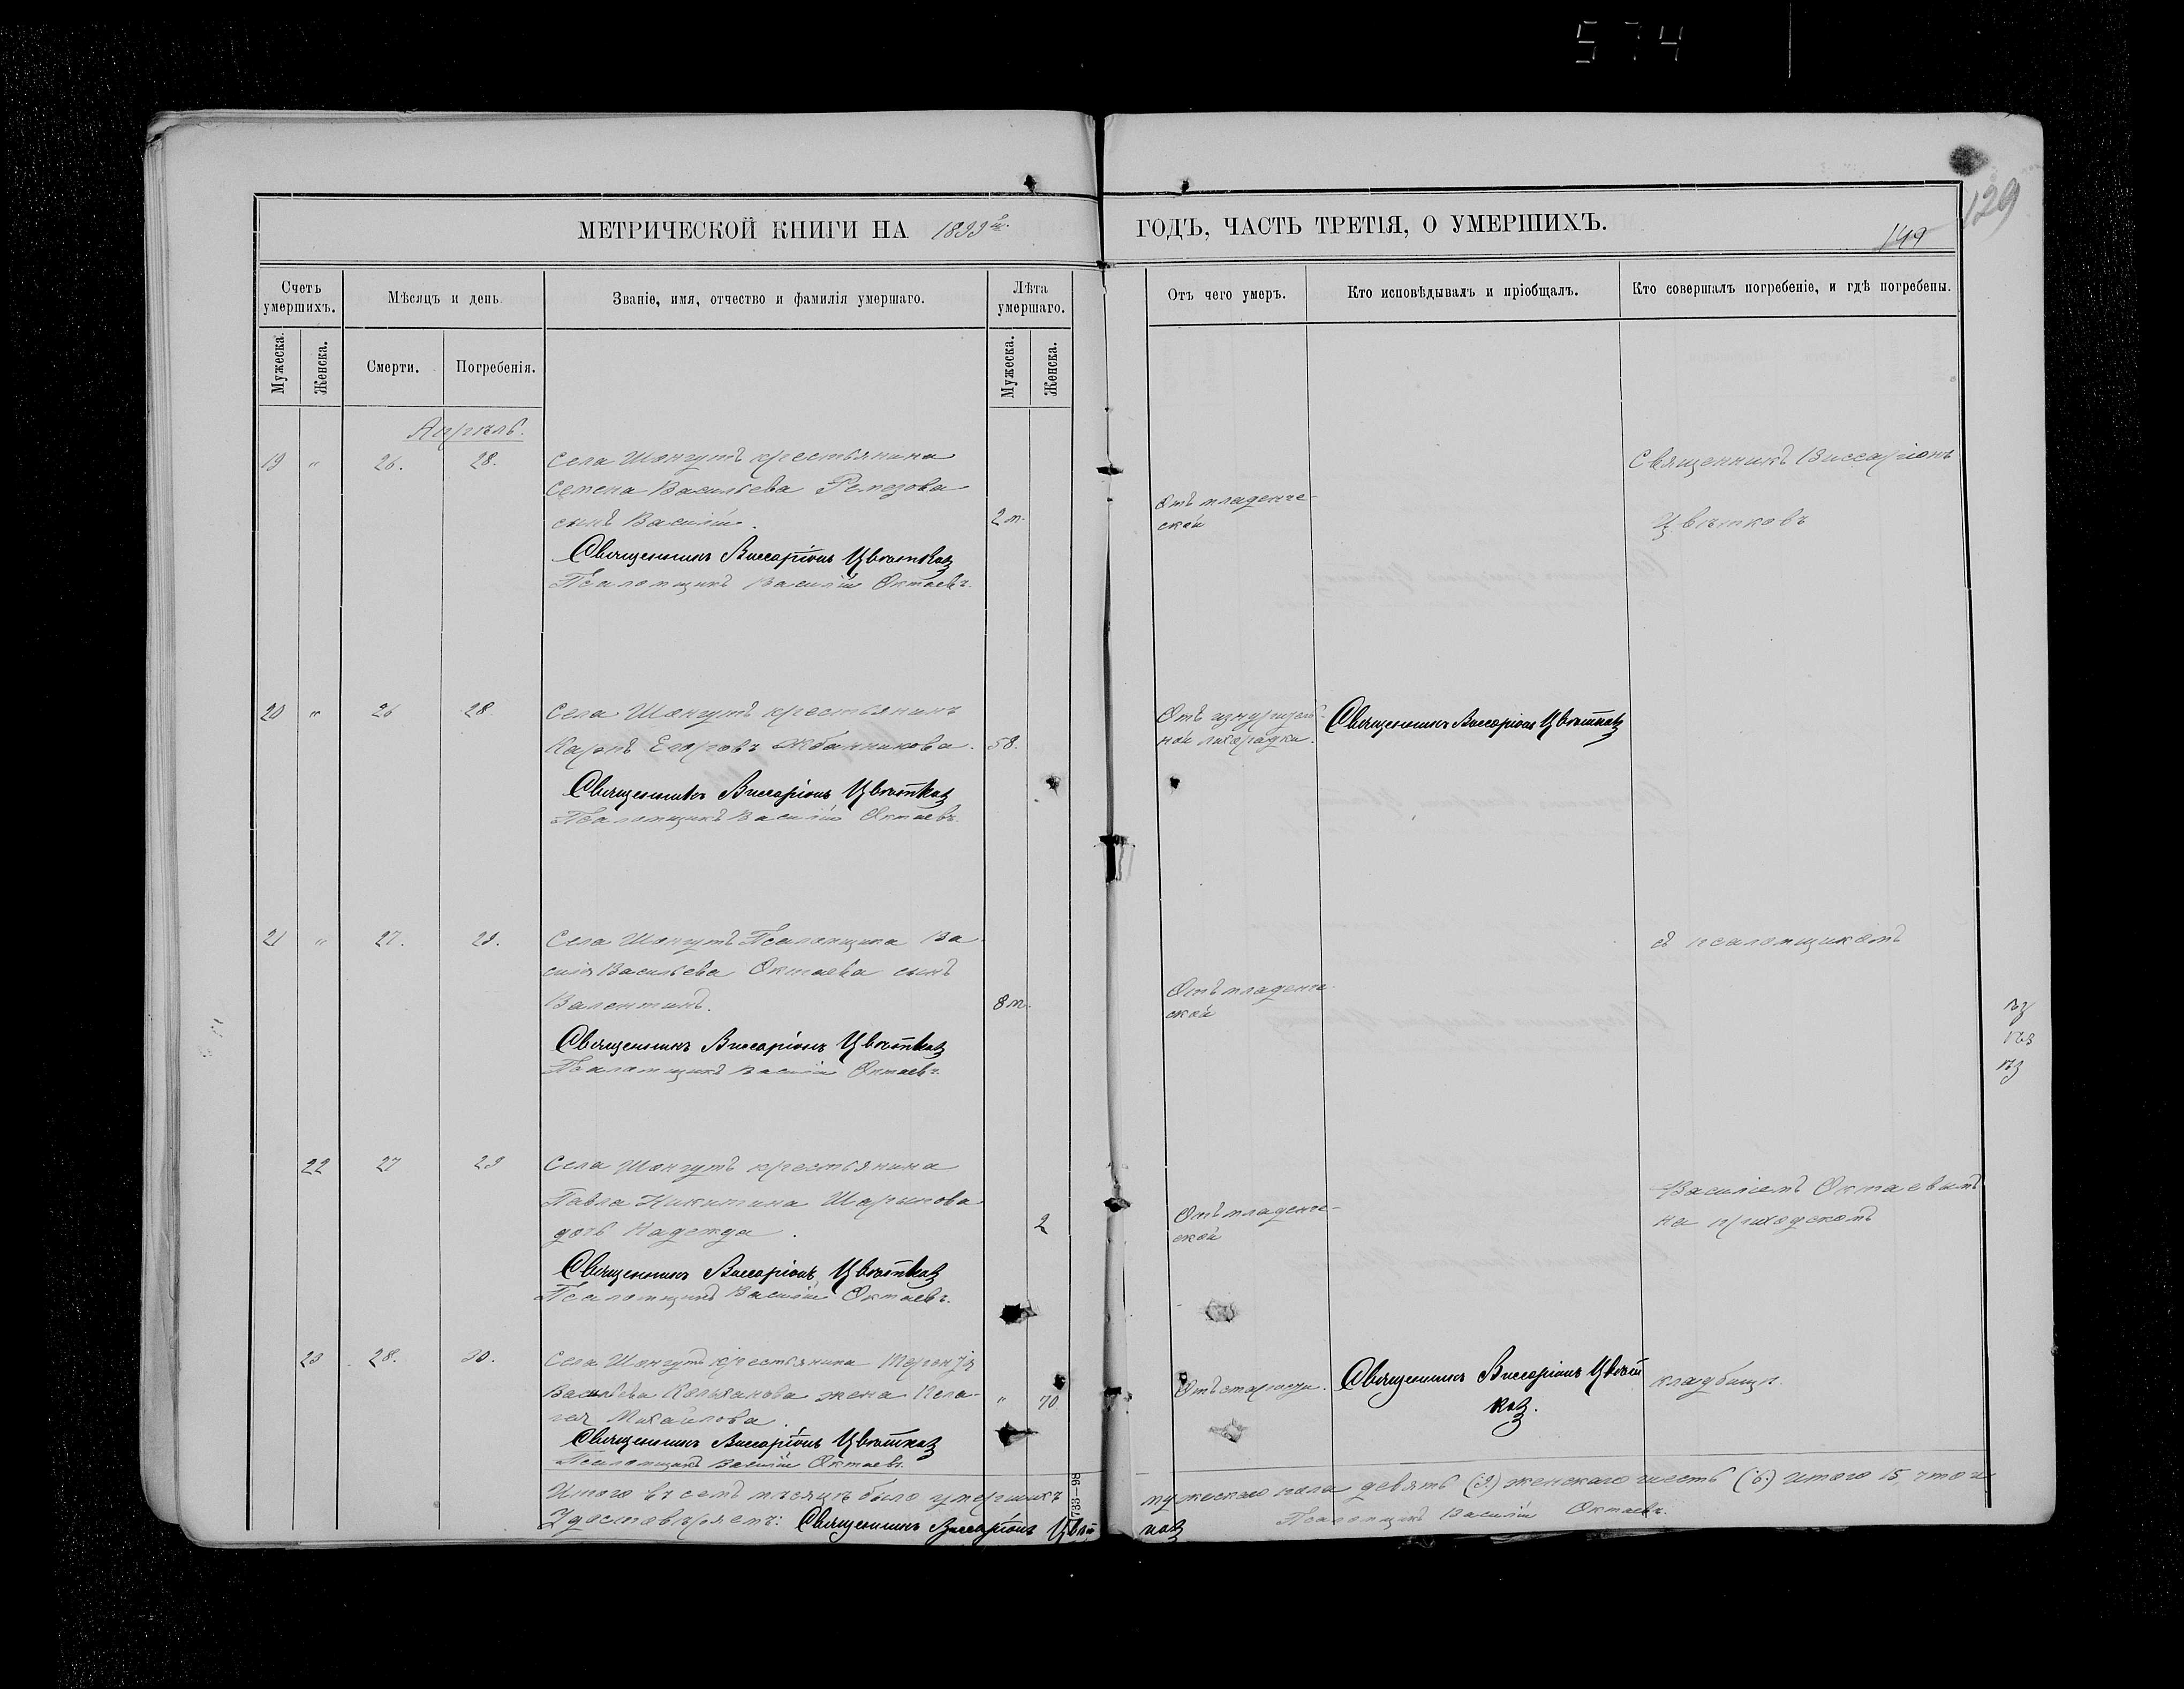 574
129
МЕТРИЧЕСКОЙ КНИГИ НА 1899й ГОДЪ, ЧАСТЬ ТРЕТІЯ, О УМЕРШИХЪ.
149
Счетъ умершихъ.
Мѣсяцъ и день.
Званіе, имя, отчество и фамилія умершаго.
Лѣта умершаго.
Отъ чего умеръ.
Кто исповѣдывалъ и пріобщалъ.
Кто совершалъ погребеніе, и гдѣ погребены.
Мужеска.
Женска.
Смерти.
Погребенія.
Мужеска.
Женска.
Апрѣль.
19 " 26. 28.
Села Шонгутъ крестьянина
Семена Васильева Ремезова
сынъ Василій.
2 м.
Отъ младенче-
ской
Священникъ Виссаріонъ
Цвѣтковъ
Священникъ Виссаріонъ Цвѣтковъ
Псаломщикъ Василій Октаевъ.
20 " 26 28.
Села Шонгутъ крестьянинъ
Карпъ Егоровъ
58.
Отъ изнурител-
ной лихорадки.
Священникъ Виссаріонъ Цвѣтковъ
Священникъ Виссаріонъ Цвѣтковъ
Псаломщикъ Василій Октаевъ.
21 " 27. 29.
Села Шонгутъ Псаломщика Ва-
силія Васильева Октаева сынъ
Валентинъ.
8 м.
Отъ младенче-
ской
съ псаломщикомъ
Священникъ Виссаріонъ Цвѣтковъ
Псаломщикъ Василій Октаевъ.
22 27 29
Села Шонгутъ крестьянина
Павла Никитина Шарунова
дочь Надежда.
2
Отъ младенче-
ской
Василіемъ Октаевымъ
на приходскомъ
Священникъ Виссаріонъ Цвѣтковъ
Псаломщикъ Василій Октаевъ.
23 28. 30.
Села Шонгутъ крестьянина Терентія
Васильева жена Пела-
гея Михайлова.
" 70
Отъ старости.
Священникъ Виссаріонъ Цвѣт
ковъ.
кладбищѣ.
Священникъ Виссаріонъ Цвѣтковъ
Псаломщикъ Василій Октаевъ.
Итого въ семъ мѣсяцѣ было умершихъ мужескаго пола девять (9.) женскаго шесть (6.) итого 15, что и
Удостовѣряемъ: Священникъ Виссаріонъ Цвѣтковъ Псаломщикъ Василій Октаевъ.
733—98